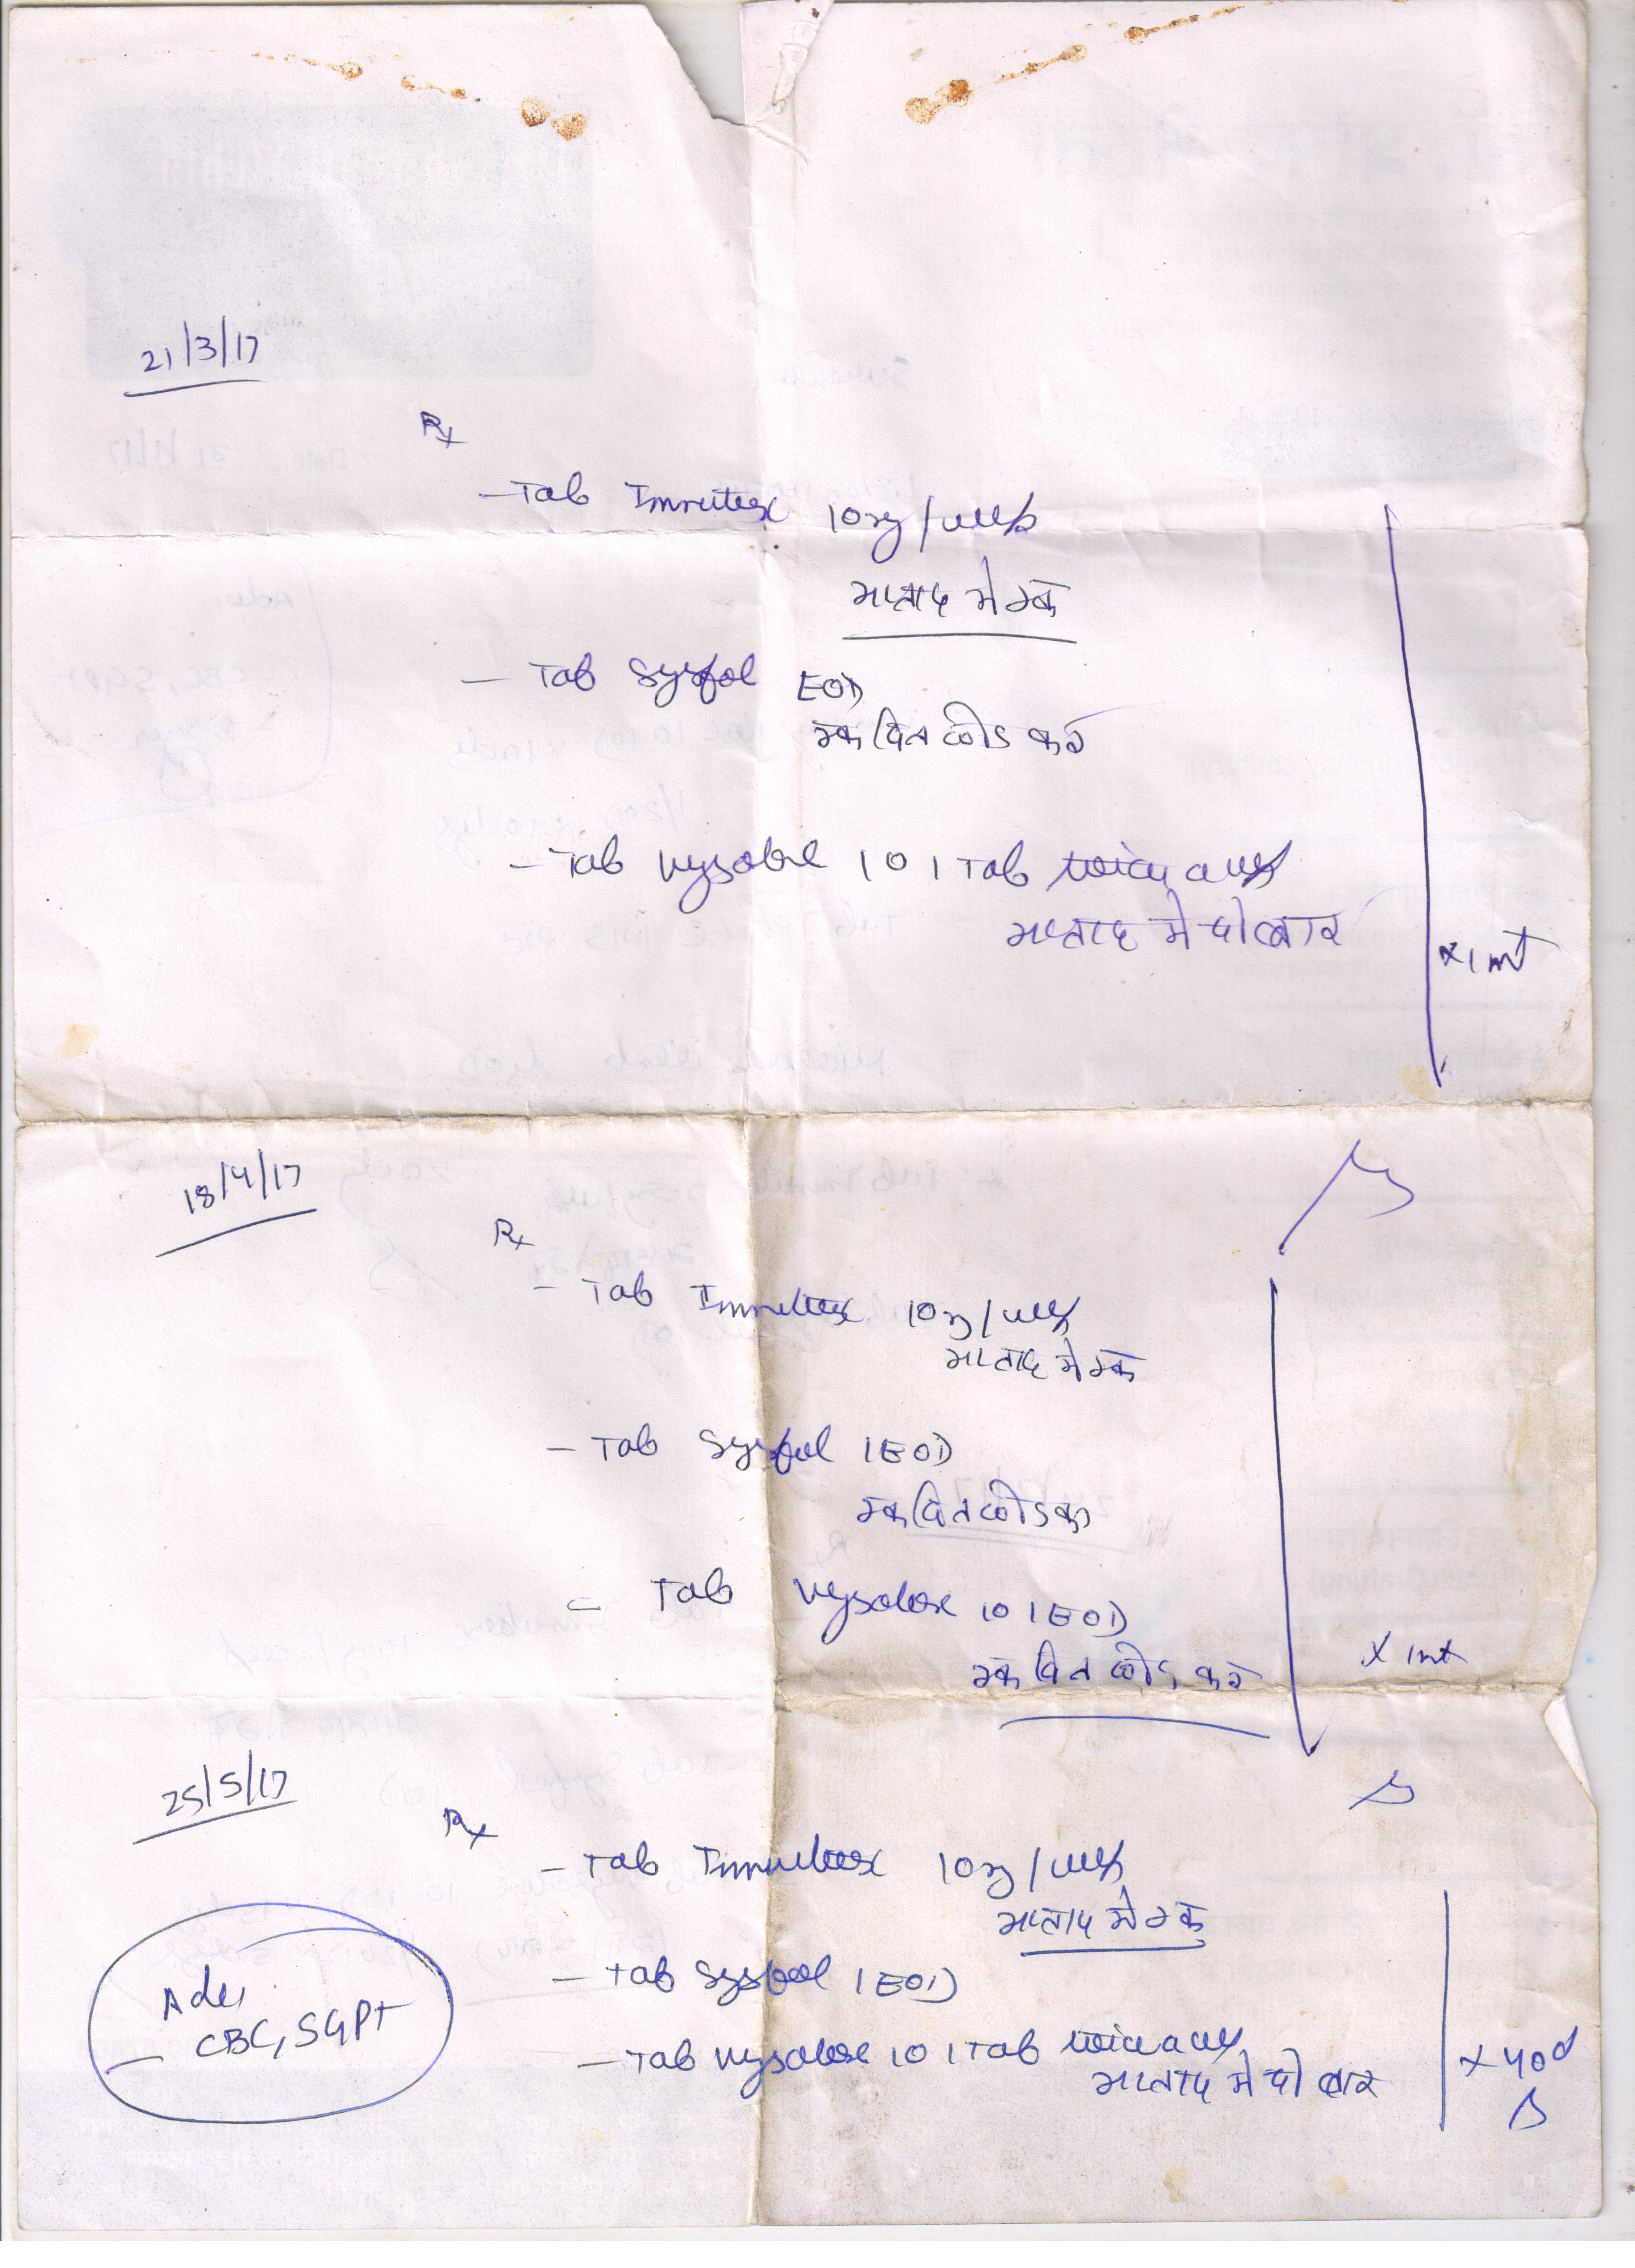 21/3/17
Rx
- Tab Imutrex 10mg/week
सप्ताह में एक
- Tab Sysfol EOD
एक दिन छोड कर
- Tab Wysolone 10 1 Tab twice a week
सप्ताह में दो बार
x 1 mt
18/4/17
Rx
- Tab Imutrex 10mg/week
सप्ताह में एक
- Tab Sysfol 1 EOD
एक दिन छोड कर
- Tab Wysolone 10 1 EOD
एक दिन छोड कर
x 1 mt
25/5/17
Rx
- Tab Imutrex 10mg/week
सप्ताह में एक
- Tab Sysfol 1 EOD
- Tab Wysolone 10 1 Tab twice a week
सप्ताह में दो बार
x 40 d
Adv
- CBC, SGPT